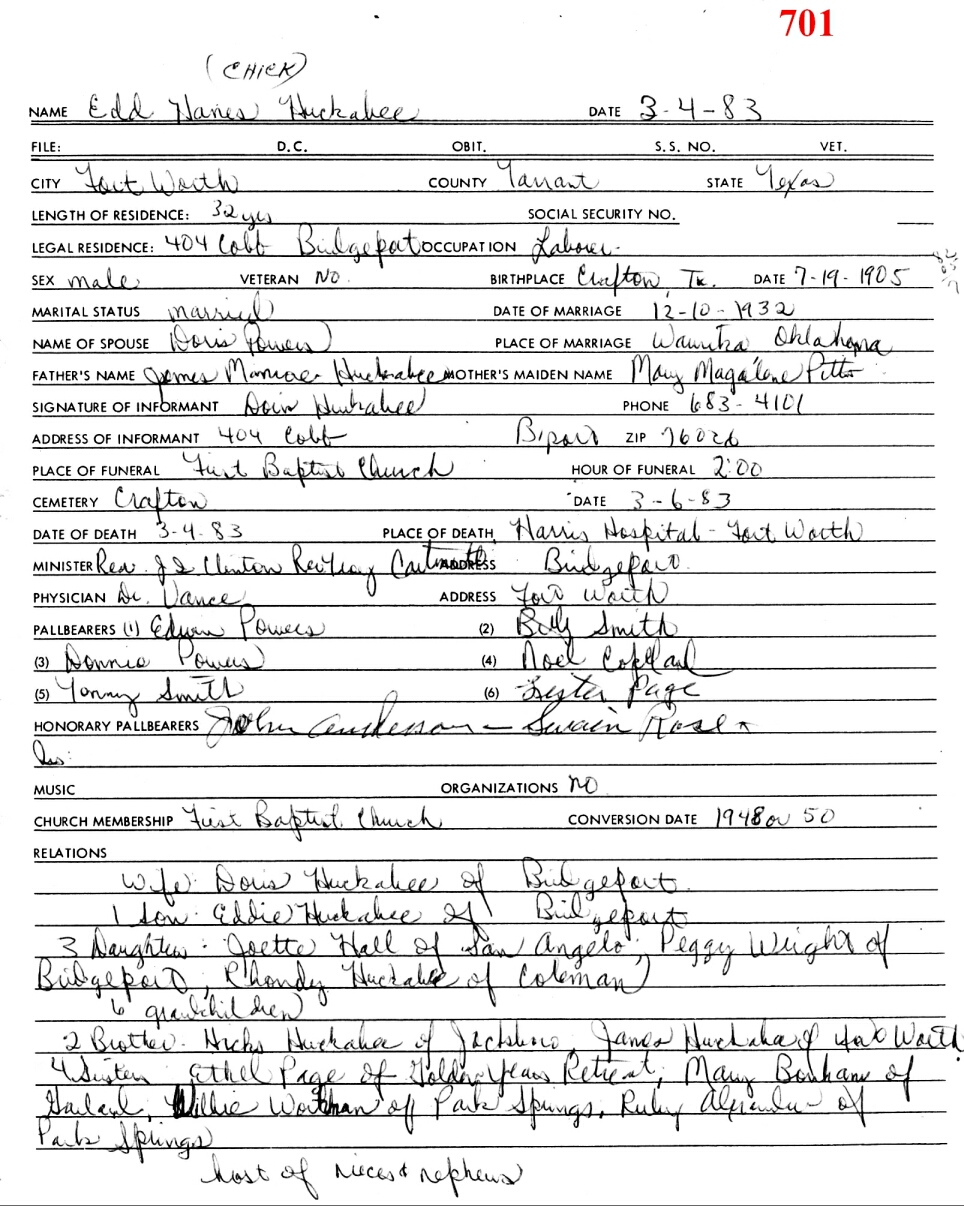 701
(CHICK)
NAME Edd Hanes Huckabee DATE 3-4-83
FILE: D.C. OBIT. S.S. NO. VET.
CITY Fort Worth COUNTY Tarrant STATE Texas
LENGTH OF RESIDENCE: 32 yrs SOCIAL SECURITY NO.
LEGAL RESIDENCE: 404 Cobb Bridgeport OCCUPATION Laborer
SEX male VETERAN NO BIRTHPLACE Crafton, Tx. DATE 7-19-1905
MARITAL STATUS married DATE OF MARRIAGE 12-10-1932
NAME OF SPOUSE Doris Powers PLACE OF MARRIAGE Waurika Oklahoma
FATHER'S NAME James Monroe Huckabee MOTHER'S MAIDEN NAME Mary Magalene Pitts
SIGNATURE OF INFORMANT Doris Huckabee PHONE 683-4101
ADDRESS OF INFORMANT 404 Cobb Bport ZIP 76026
PLACE OF FUNERAL First Baptist Church HOUR OF FUNERAL 2:00
CEMETERY Crafton DATE 3-6-83
DATE OF DEATH 3-4-83 PLACE OF DEATH Harris Hospital - Fort Worth
MINISTER Rev. Clinton Rev ADDRESS Bridgeport
PHYSICIAN Dr. Vance ADDRESS Fort Worth
PALLBEARERS (1) Edwin Powers (2) Billy Smith
(3) Donnie Powers (4) Noel Copeland
(5) Tommy Smith (6) Lester Page
HONORARY PALLBEARERS John Anderson - Swain Rose
MUSIC ORGANIZATIONS NO
CHURCH MEMBERSHIP First Baptist Church CONVERSION DATE 1948 or 50
RELATIONS
Wife: Doris Huckabee of Bridgeport
1 son: Eddie Huckabee of Bridgeport
3 Daughters: Joette Hall of San Angelo; Peggy Wright of
Bridgeport; Rhondy Huckabee of Coleman
6 grandchildren
2 Brother- Hicks Huckabee of Jacksboro, James Huckabee of Fort Worth
4 Sisters Ethel Page of Golden Years Retreat; Mary Bonham of
Garland; Willie Workman of Park Springs, Ruby Alexander of
Park Springs
host of nieces & nephews